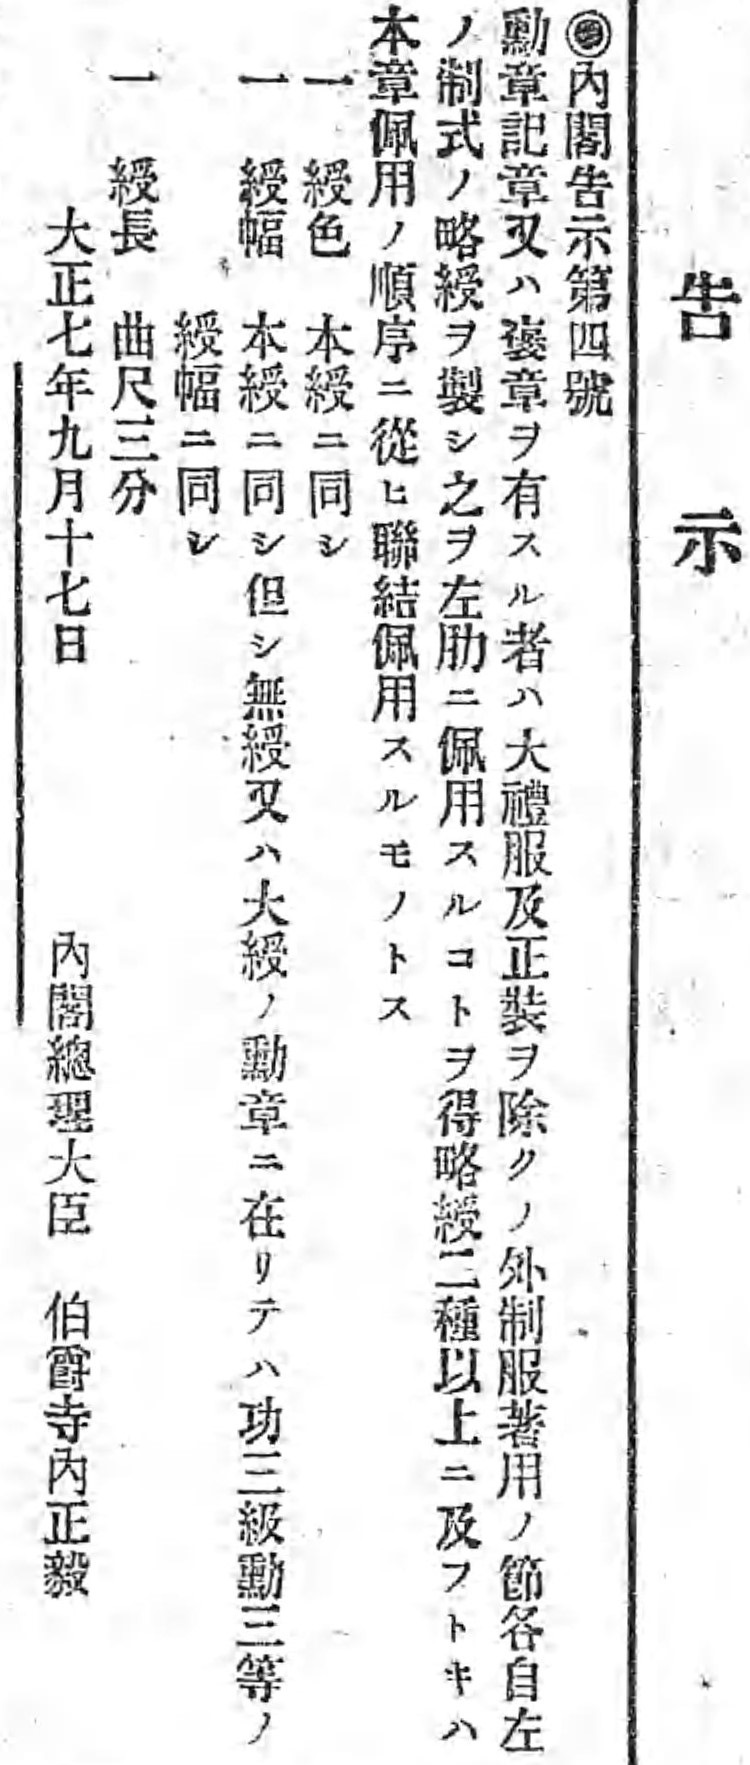 告示
◎內閣告示第四號
勳章記章又ハ褒章ヲ有スル者ハ大禮服及正裝ヲ除クノ外制服著用ノ節各自左
ノ制式ノ略綬ヲ製シ之ヲ左肋ニ佩用スルコトヲ得略綬二種以上ニ及フトキハ
本章佩用ノ順序ニ從ヒ聯結佩用スルモノトス
一 綬色 本綬ニ同シ
一 綬幅 本綬ニ同シ但シ無綬又ハ大綬ノ勳章ニ在リテハ功三級勳三等ノ
綬幅ニ同シ
一 綬長 曲尺三分
大正七年九月十七日
內閣總理大臣 伯爵寺內正毅